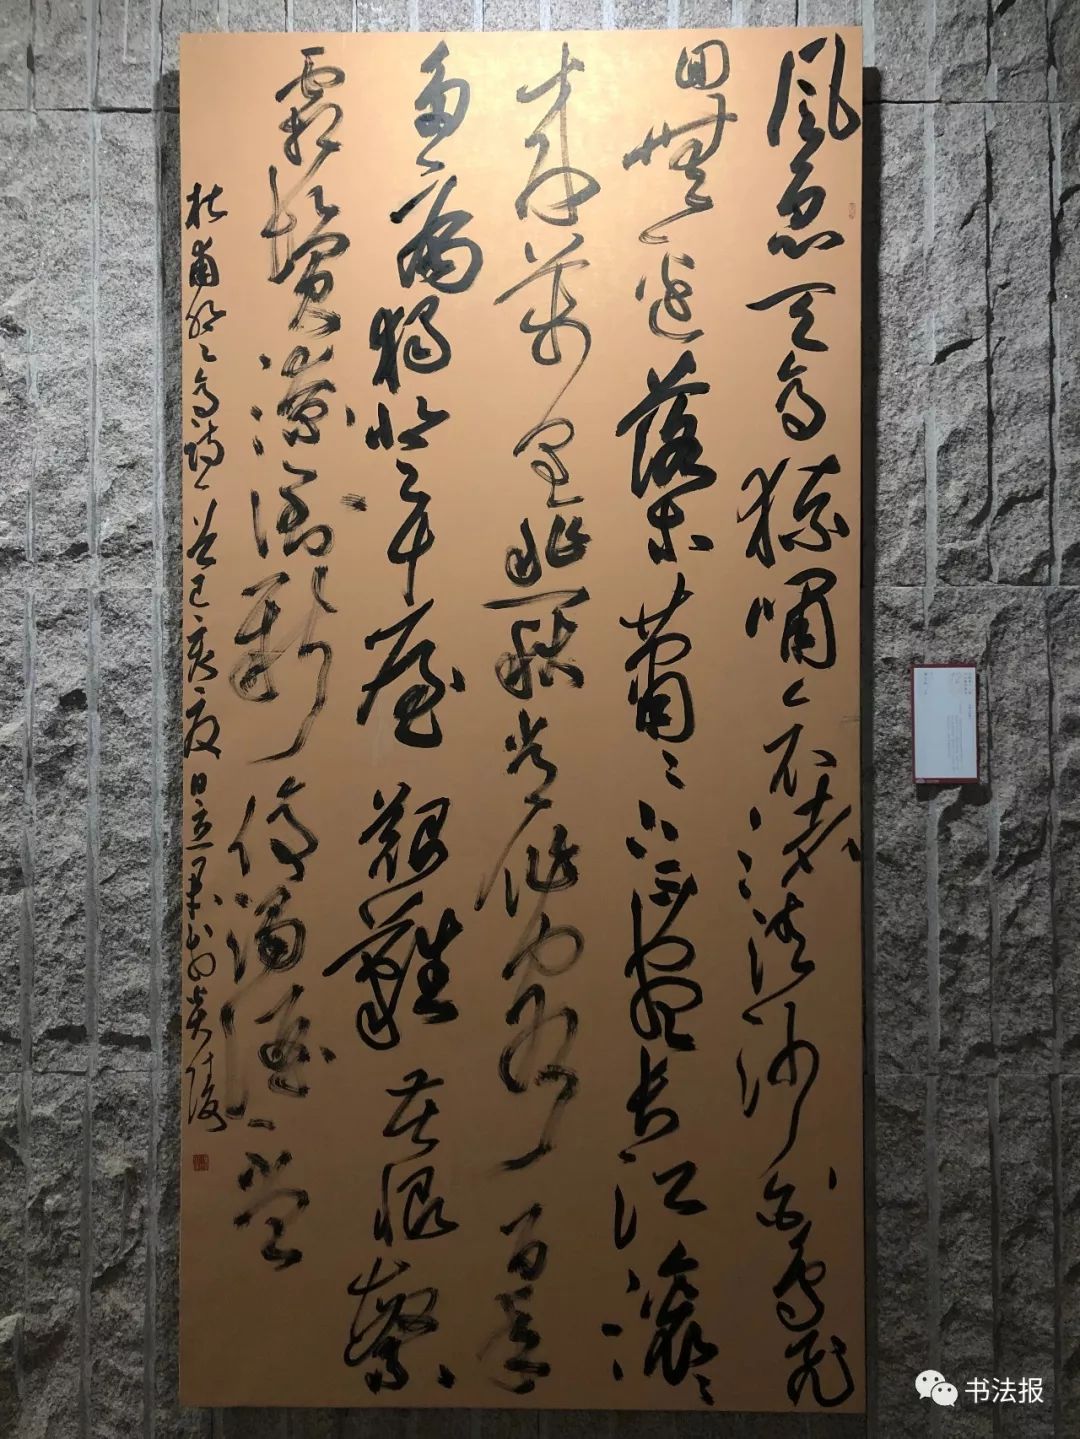 風急天高猿嘯哀渚清沙白鳥飛
回無邊落木蕭〻不盡長江滾〻
來萬里悲秋常作客百年
多病獨登臺艱難苦恨繁
霜鬢潦倒新停濁酒杯
杜甫登高詩一首己亥夏日於炎陵
书法报